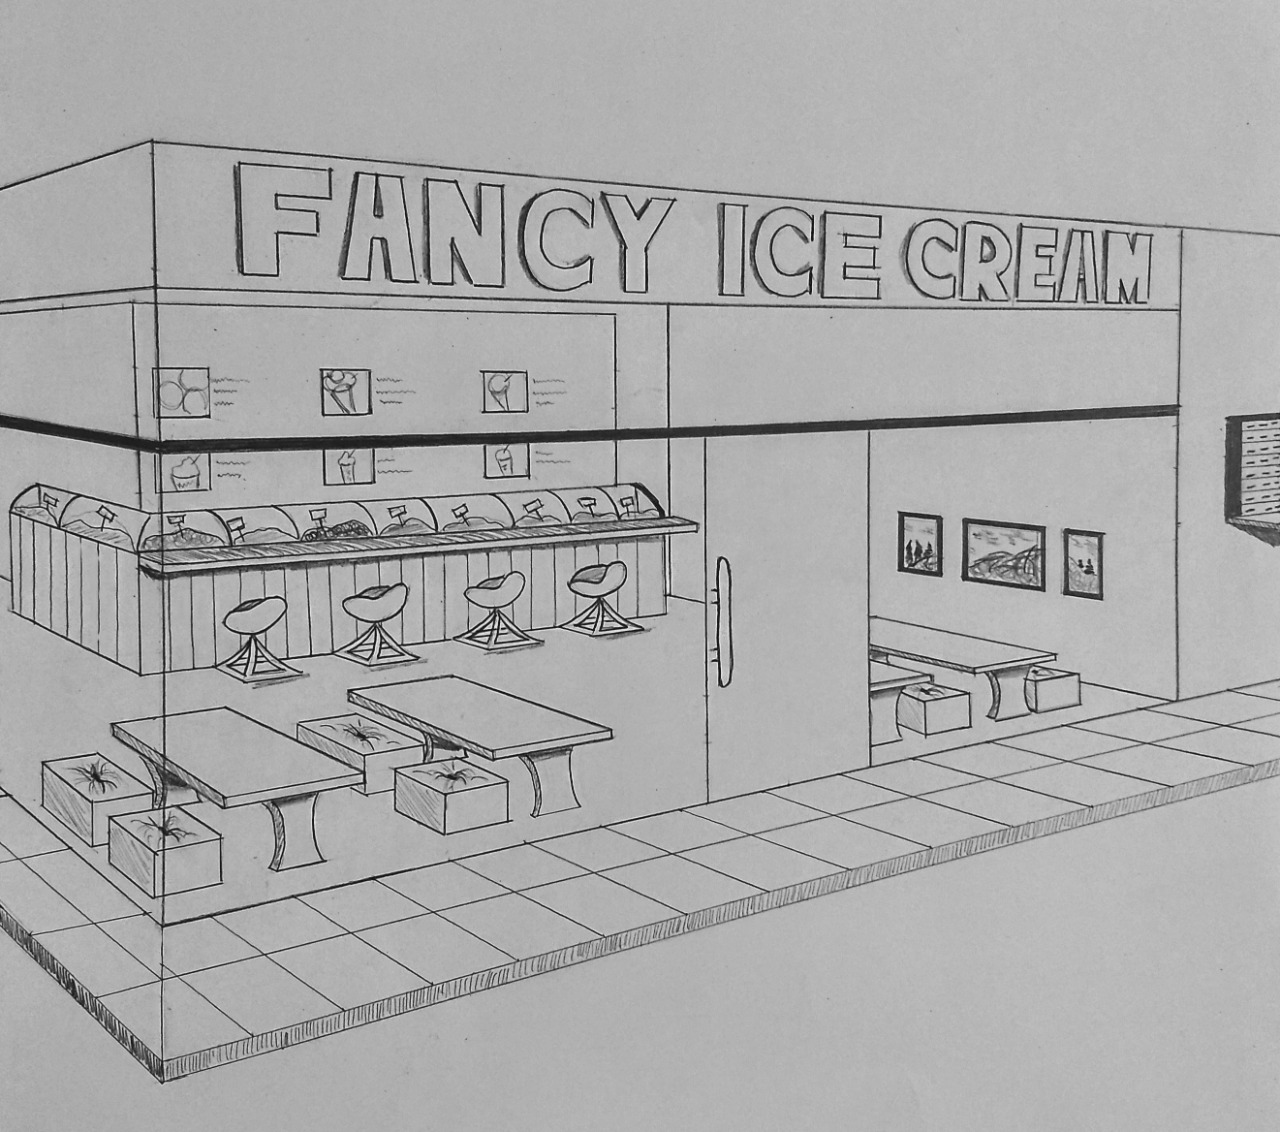 FANCY ICE CREAM